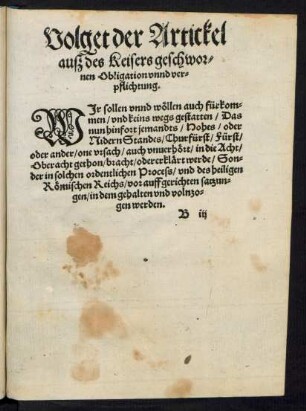 Volget der Artickel
auß des Keisers geschwor-
nen Obligation vnnd ver-
pflichtung.
WIr sollen vnnd wöllen auch fürkom-
men / vnd keins wegs gestatten / Das
nun hinfort jemandts / Hohes / oder
Nidern Standes / Churfürst / Fürst /
oder ander / one vrsach / auch vnuerhört / in die Acht /
Oberacht gethon / bracht / oder erklärt werde / Son-
der in solchen ordentlichen Proceß / vnd des heiligen
Römischen Reichs / vor auffgerichten satzun-
gen / in dem gehalten vnd volnzo-
gen werden.
B iij